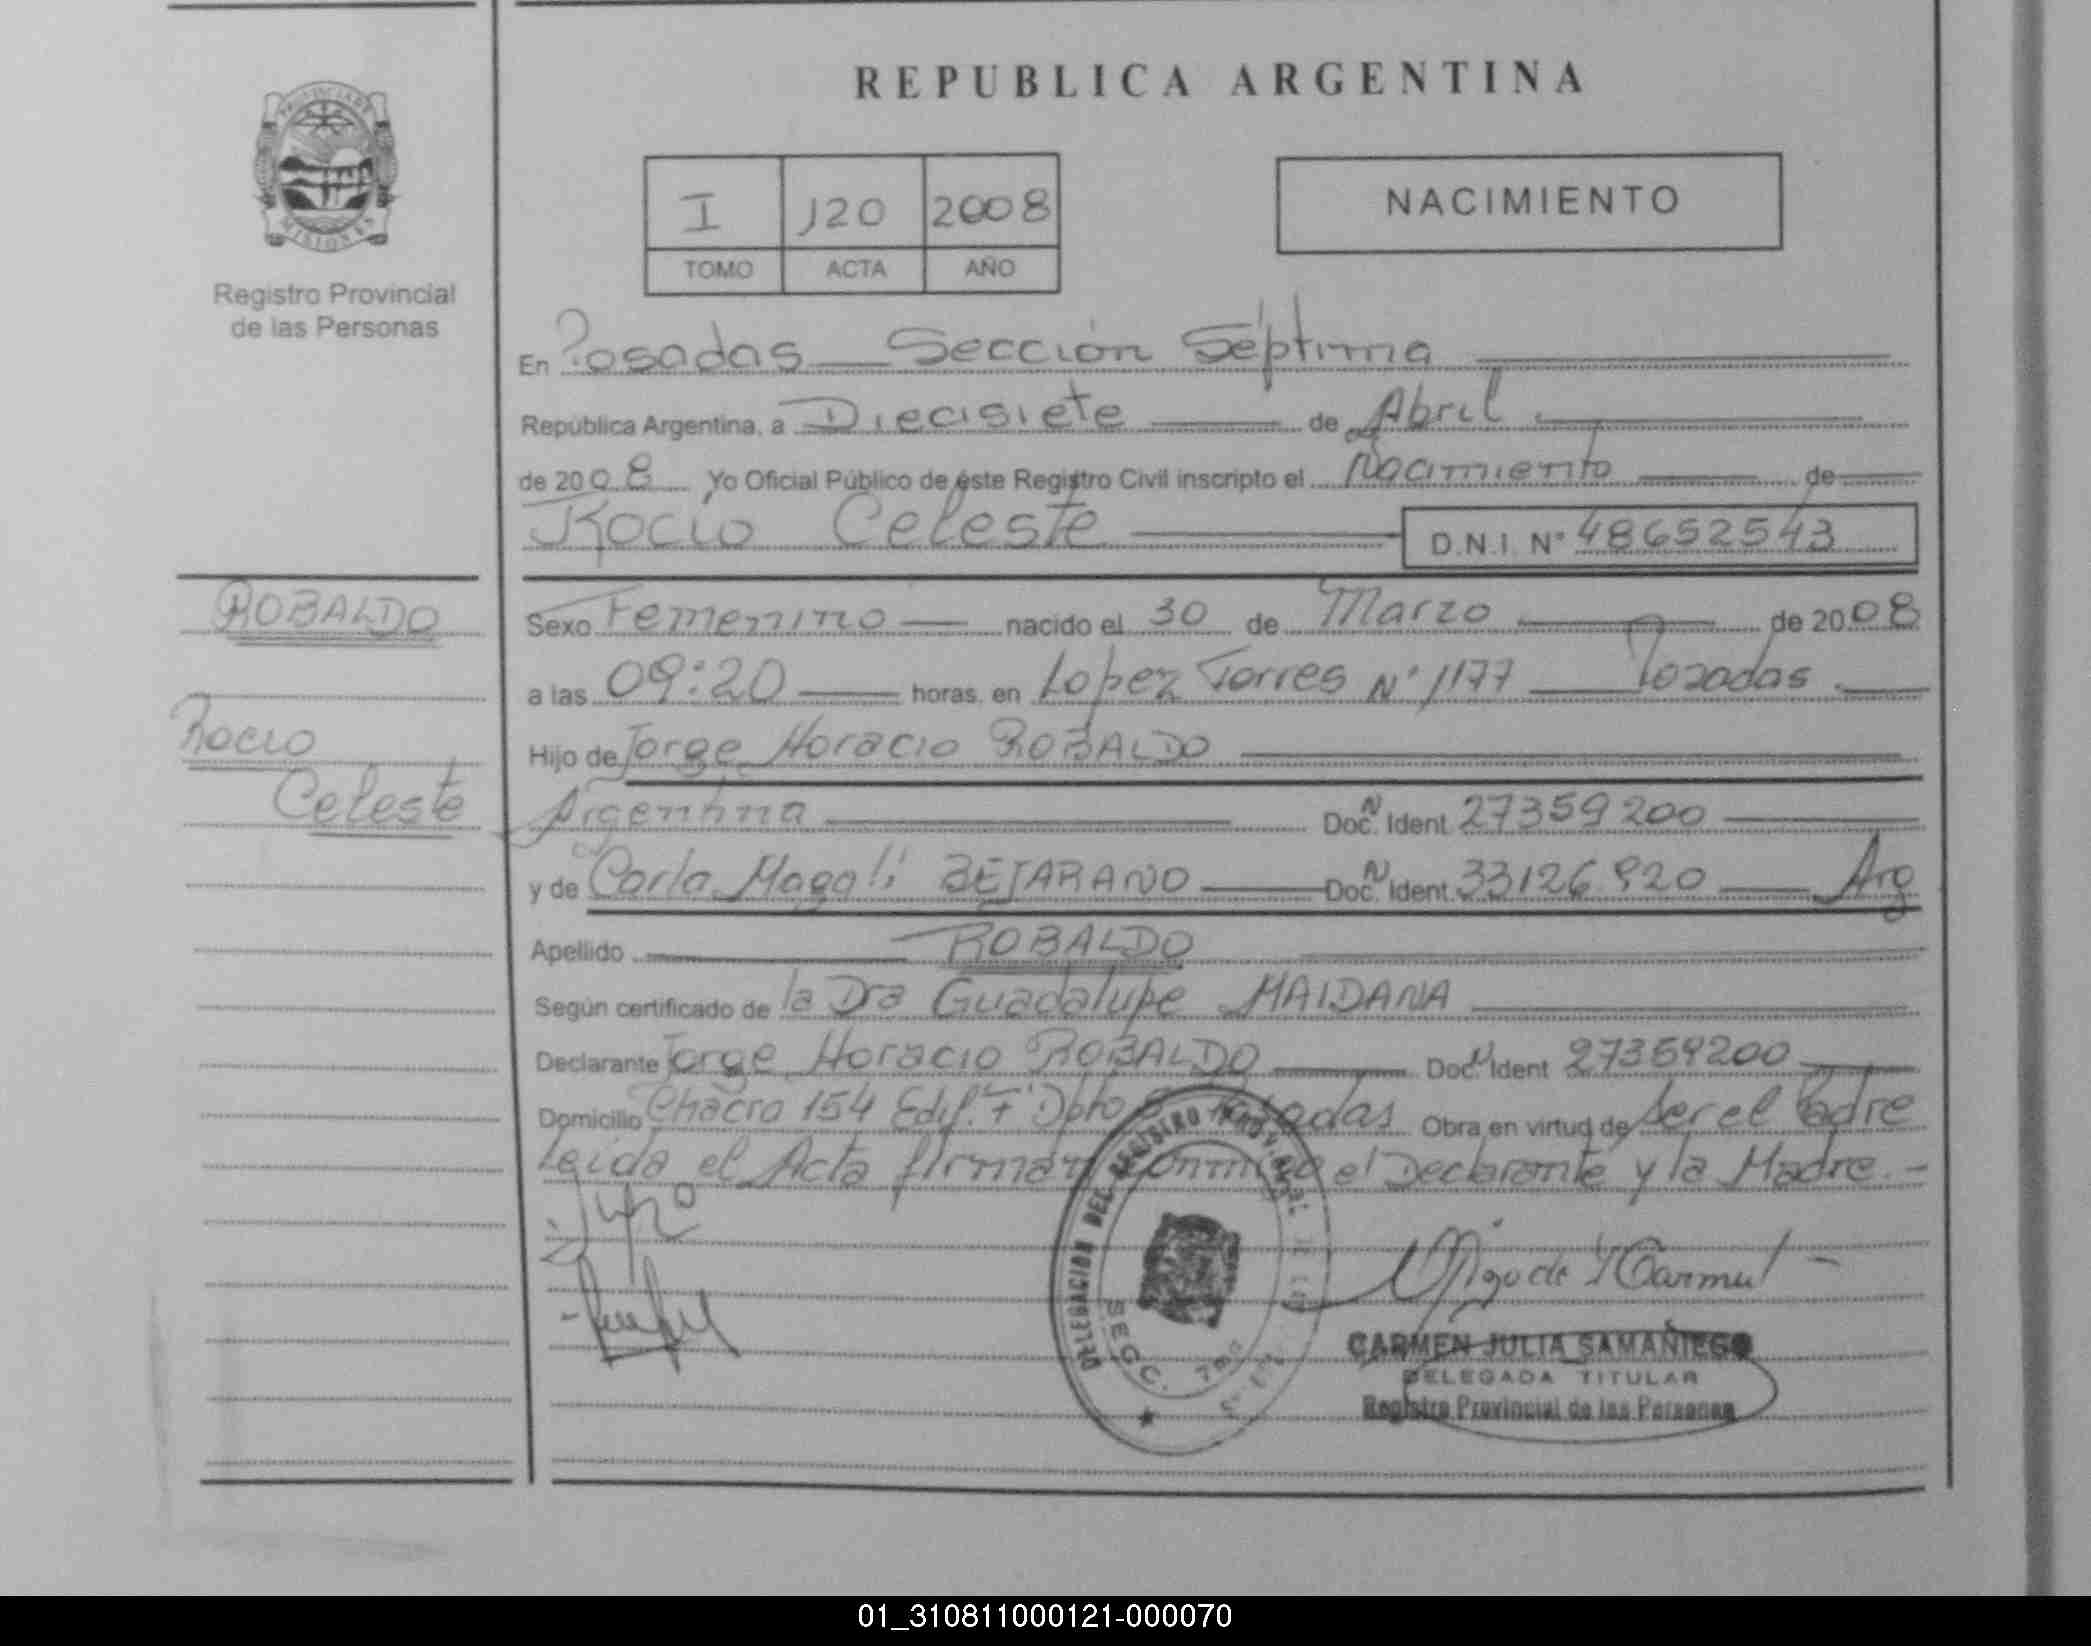 REPUBLICA ARGENTINA
PROVINCIA DE
MISIONES
Registro Provincial
de las Personas
I 120 2008
TOMO ACTA AÑO
NACIMIENTO
En Posadas — Sección Séptima
República Argentina, a Diecisiete de Abril
de 2008 Yo Oficial Público de éste Registro Civil inscripto el Nacimiento de
Rocío Celeste D.N.I. N° 48652543
ROBALDO
Rocio
Celeste
Sexo Femenino nacido el 30 de Marzo de 2008
a las 09:20 horas, en Lopez Torres N° 1177 Posadas
Hijo de Jorge Horacio ROBALDO
Argentina Doc. N Ident. 27359200
y de Carla Magalí BEJARANO Doc. N Ident. 33126.920 Arg
Apellido ROBALDO
Según certificado de la Dra Guadalupe MAIDANA
Declarante Jorge Horacio ROBALDO Doc. N Ident 27359200
Domicilio Chacra 154 Edif. F Dpto Posadas Obra en virtud de ser el Padre
Leída el Acta firman conmigo el Declarante y la Madre.-
DELEGACION DEL REGISTRO PROVINCIAL DE LAS
SECC. 7ma
CARMEN JULIA SAMAÑIEGO
DELEGADA TITULAR
Registro Provincial de las Personas
01_310811000121-000070